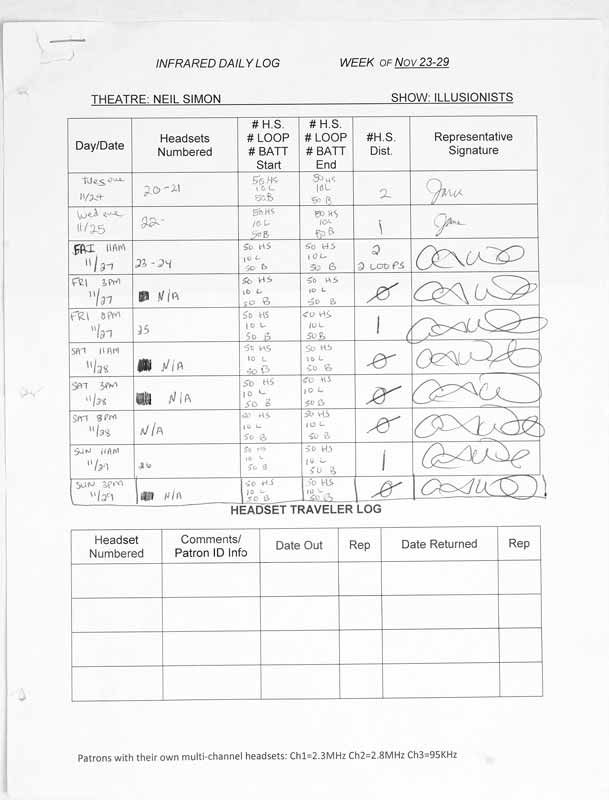 INFRARED DAILY LOG WEEK OF NOV 23-29
THEATRE: NEIL SIMON SHOW: ILLUSIONISTS
Day/Date Headsets Numbered # H.S. # LOOP # BATT Start # H.S. # LOOP # BATT End #H.S. Dist. Representative Signature
Tues eve 11/24 20-21 50 HS 10 L 50 B 50 HS 10 L 50 B 2
Wed eve 11/25 22 50 HS 10 L 50 B 50 HS 10 L 50 B 1
FRI 11AM 11/27 23-24 50 HS 10 L 50 B 50 HS 10 L 50 B 2 2 LOOPS
FRI 3PM 11/27 N/A 50 HS 10 L 50 B 50 HS 10 L 50 B 0
FRI 8PM 11/27 25 50 HS 10 L 50 B 50 HS 10 L 50 B 1
SAT 11AM 11/28 N/A 50 HS 10 L 50 B 50 HS 10 L 50 B 0
SAT 3PM 11/28 N/A 50 HS 10 L 50 B 50 HS 10 L 50 B 0
SAT 8PM 11/28 N/A 50 HS 10 L 50 B 50 HS 10 L 50 B 0
SUN 11AM 11/29 26 50 HS 10 L 50 B 50 HS 10 L 50 B 1
SUN 3PM 11/29 N/A 50 HS 10 L 50 B 50 HS 10 L 50 B 0
HEADSET TRAVELER LOG
Headset Numbered Comments/ Patron ID Info Date Out Rep Date Returned Rep
Patrons with their own multi-channel headsets: Ch1=2.3MHz Ch2=2.8MHz Ch3=95KHz